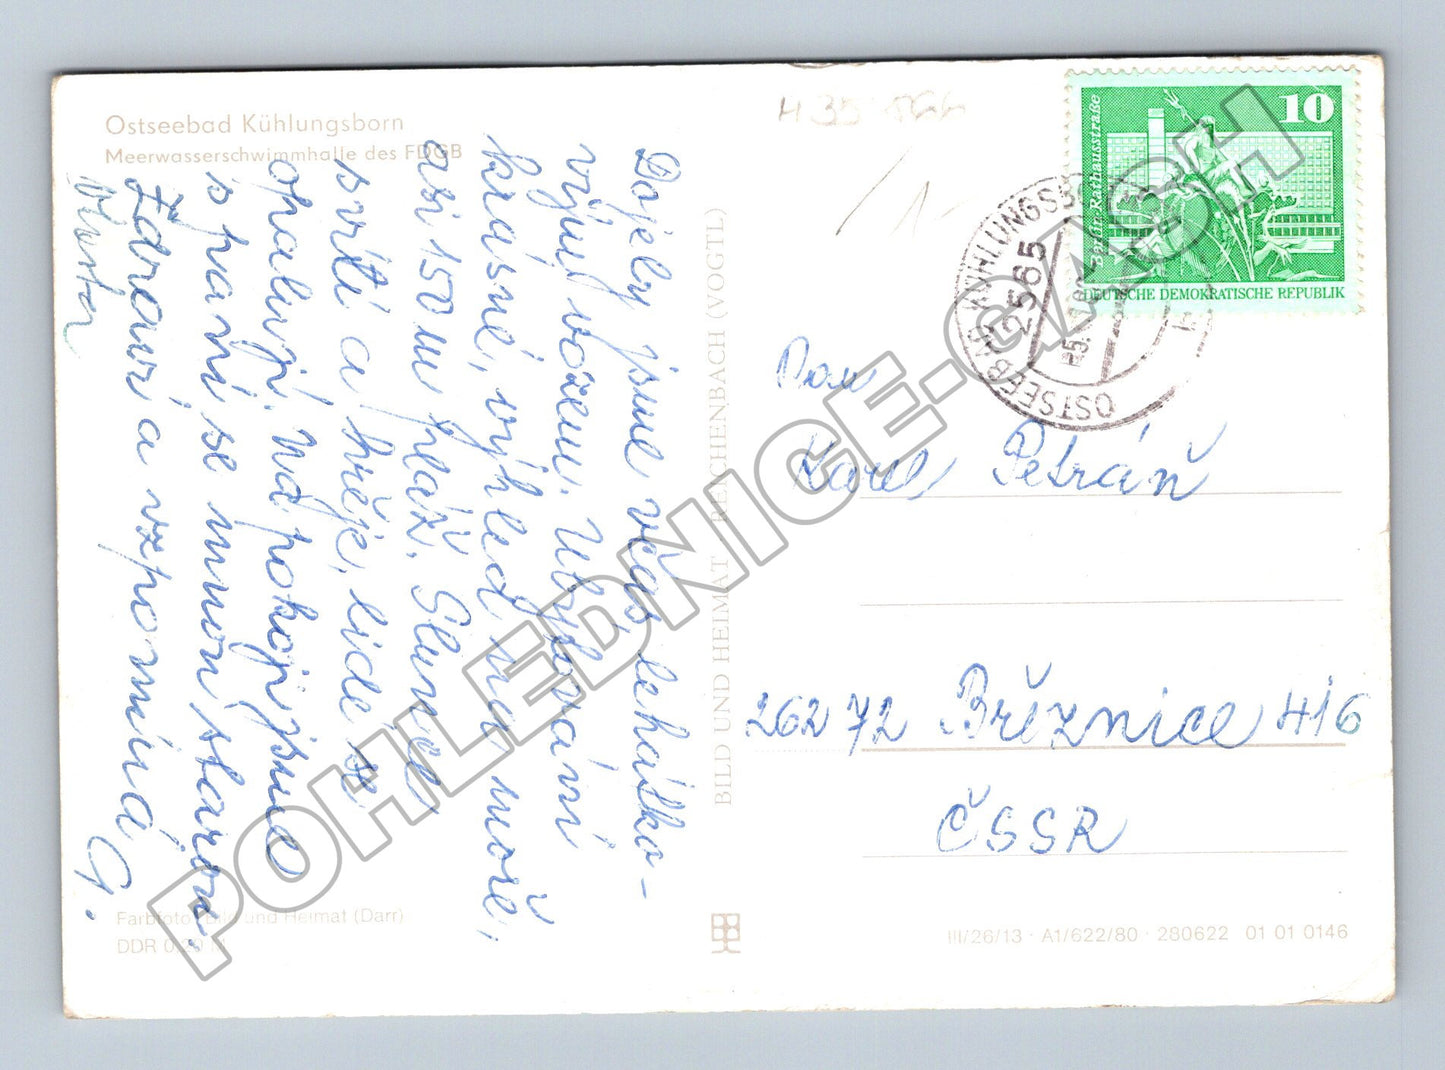 Ostseebad Kühlungsborn
Meerwasserschwimmhalle des FDGB
Dojely jsme včas lehátko-
vým vozem. Ubytování
krásné, výhled na moře,
asi 150 m pláž. Slunce
svítí a hřeje, lidé se
opalují. Na pokoji jsme
s paní se mnou starou
Zdraví a vzpomíná
G.
Vlasta
Farbfoto: Bild und Heimat (Darr)
DDR 0,20 M
BILD UND HEIMAT REICHENBACH (VOGTL)
435 166
/1-
10
Berlin-Rathausstraße
DEUTSCHE DEMOKRATISCHE REPUBLIK
OSTSEEBAD KÜHLUNGSBORN
2565
Pan
Karel Petráň
262 72 Březnice 416
ČSSR
III/26/13 · A1/622/80 · 280622 01 01 0146
POHLEDNICE-GASH